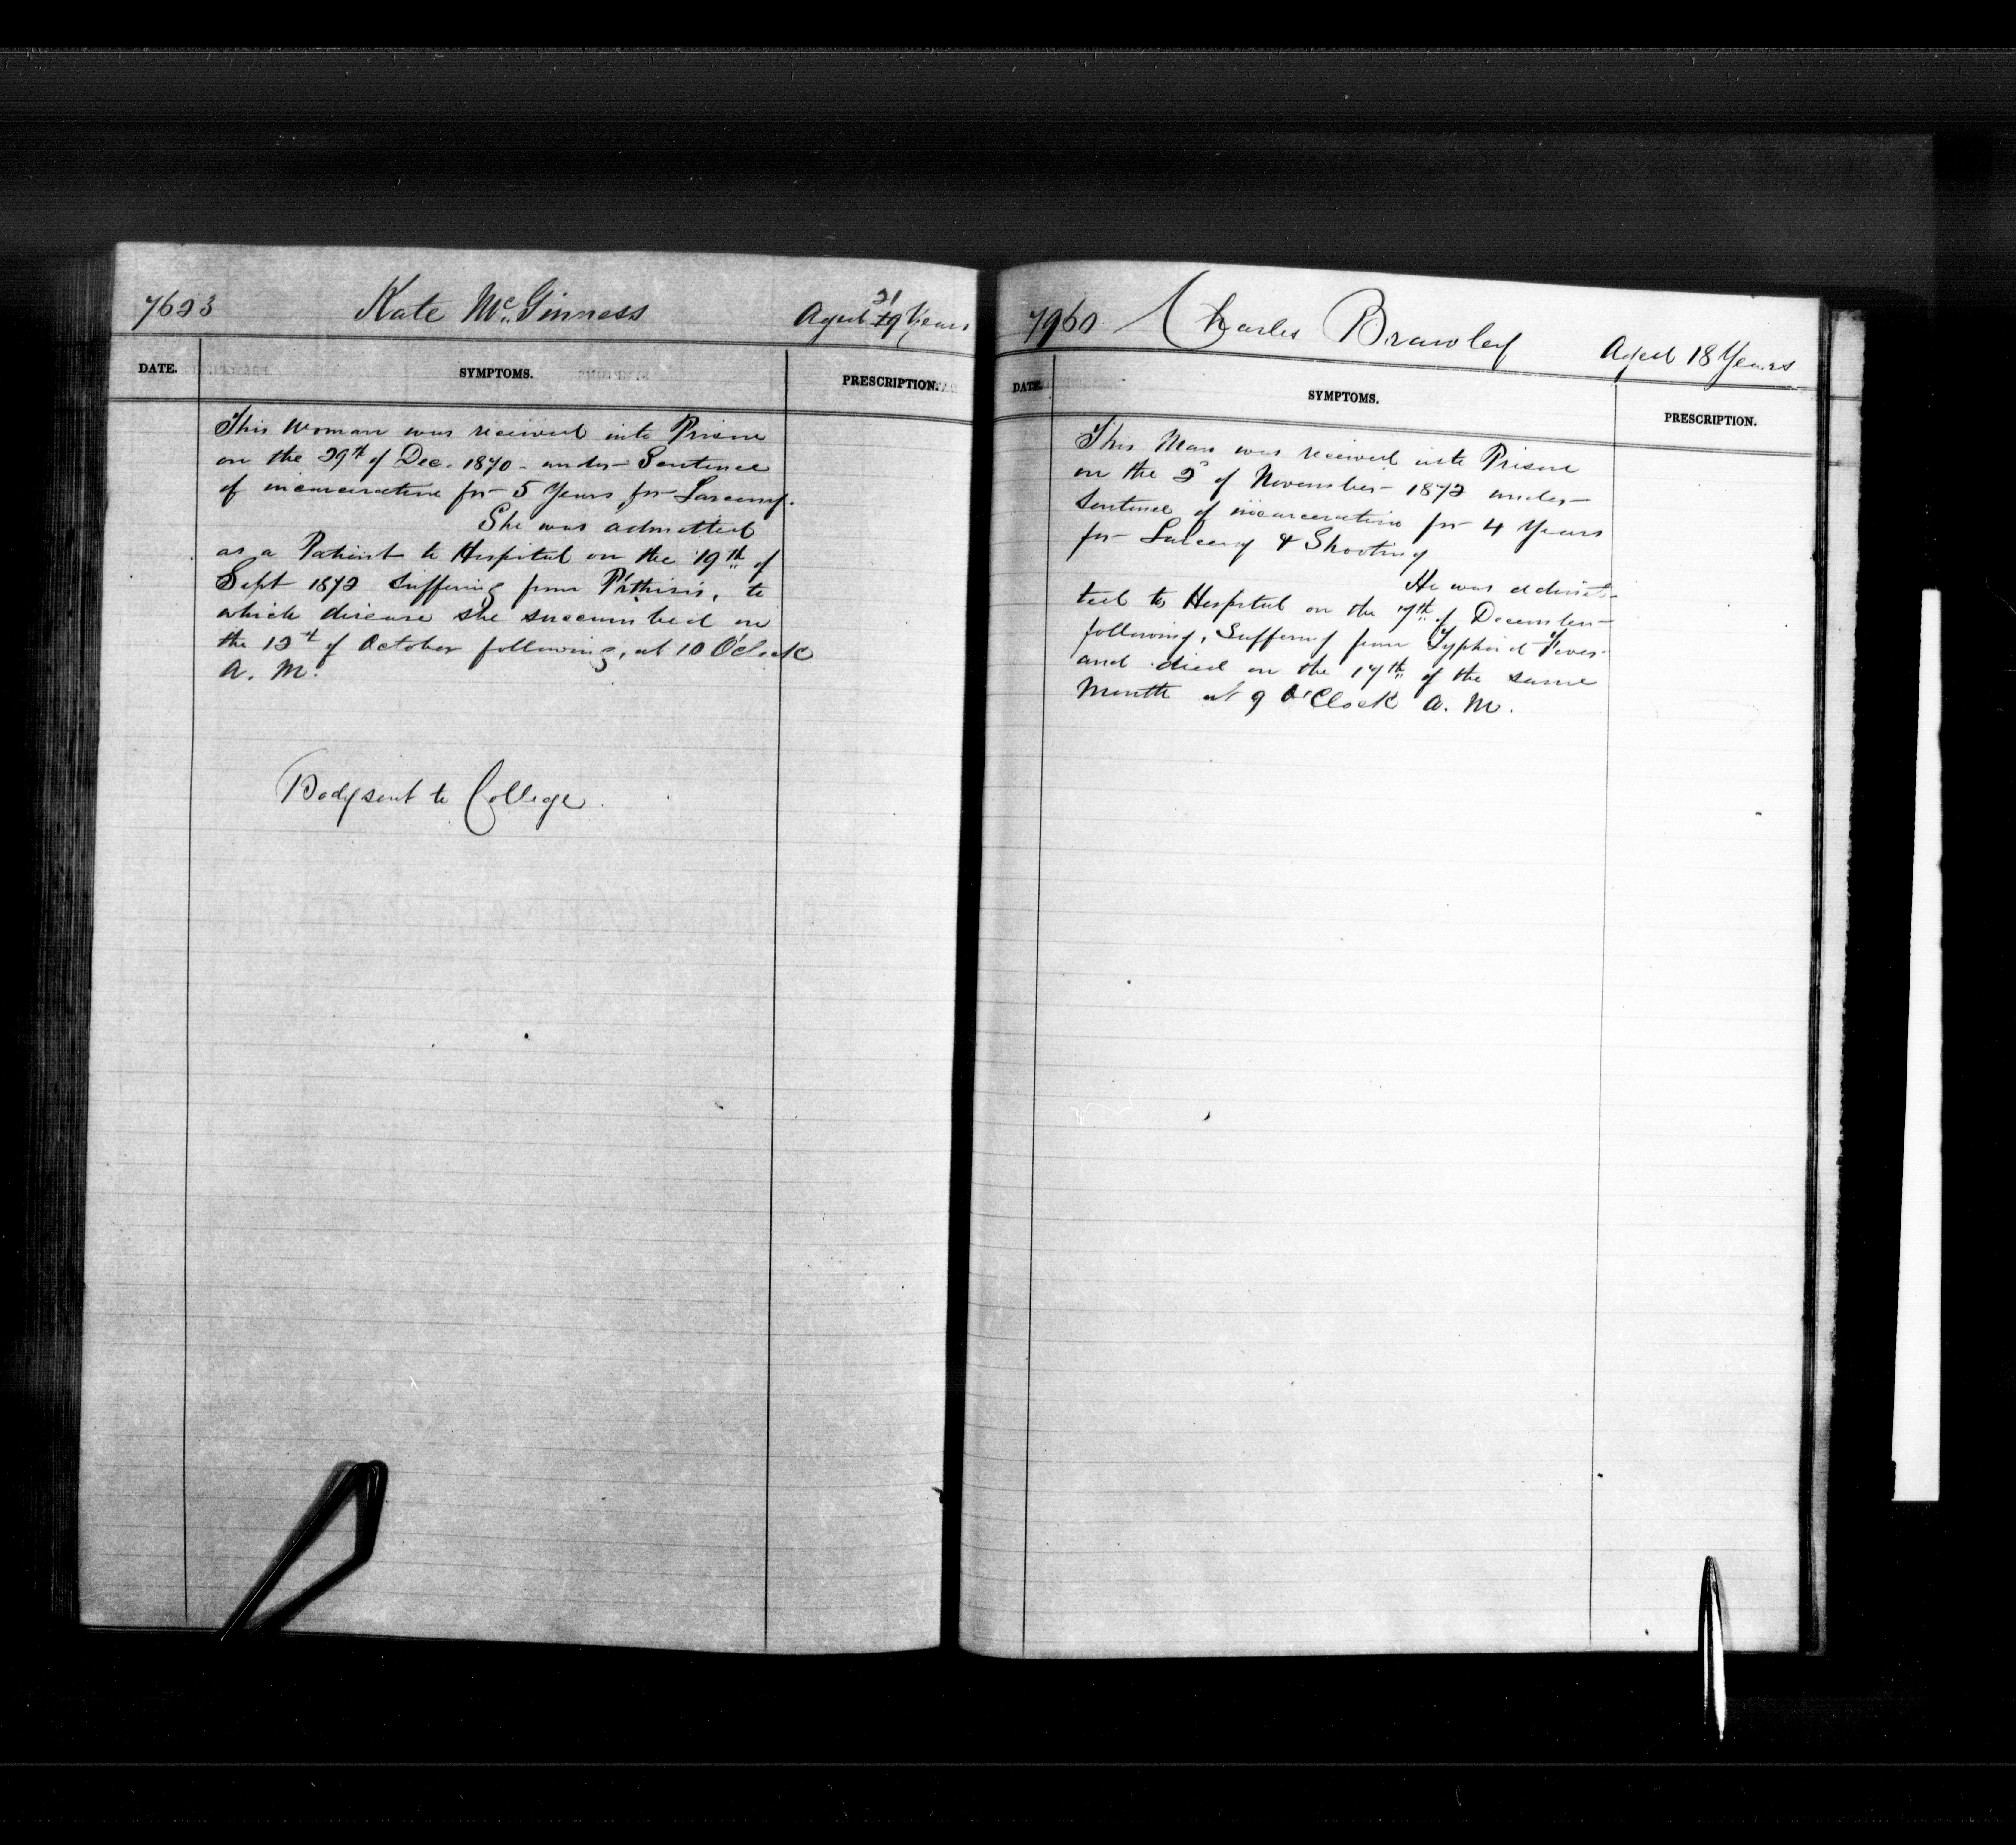 7623 Kate McGinness Aged 21 19 Years
DATE. SYMPTOMS. PRESCRIPTION.
This Woman was received into Prison
on the 29th of Dec. 1870 - under Sentence
of incarceration for 5 Years for Larceny.
She was admitted
as a Patient to Hospital on the 19th of
Sept 1872 Suffering from Pthisis, to
which disease she succumbed on
the 12th of October following, at 10 O'Clock
A. M.
Body sent to College.
7960 Charles Brawley Aged 18 Years
DATE. SYMPTOMS. PRESCRIPTION.
This Man was received into Prison
on the 2d of November 1872 under
Sentence of incarceration for 4 Years
for Larceny & Shooting
He was admit-
ted to Hospital on the 7th of December
following, Suffering from Typhoid Fever
and died on the 17th of the same
Month at 9 O'Clock A. M.